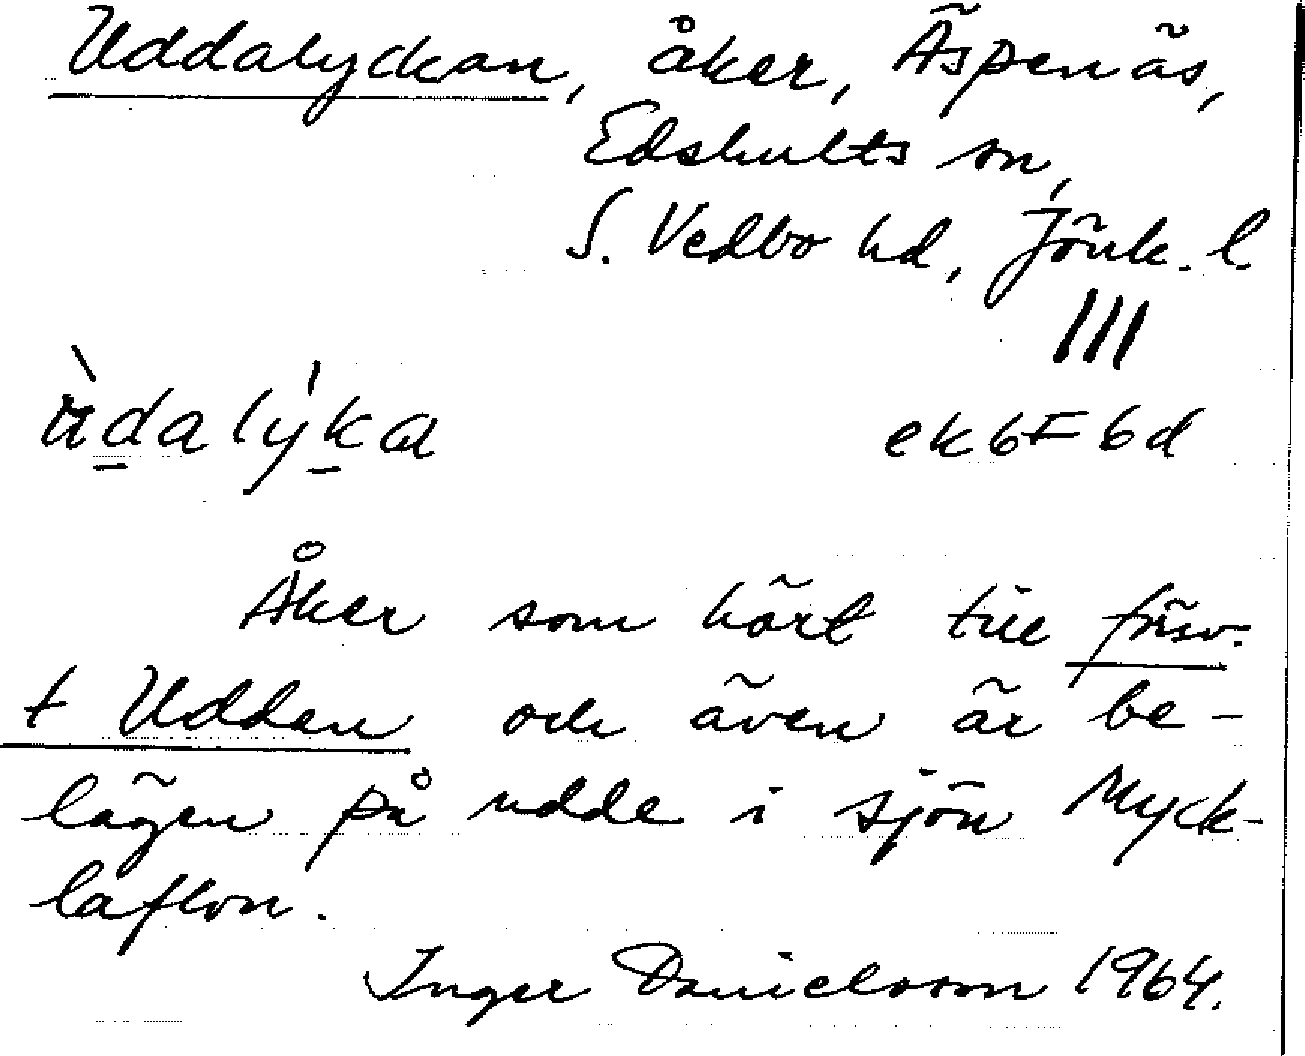 Uddalyckan, åker, Äspenäs,
Edshults sn,
S. Vedbo hd, Jönk. l.
III
ùdalýka ek6F6d
Åker som hört till försv.
t Udden och även är be-
lägen på udde i sjön Myck-
laflon.
Inger Danielsson 1964.